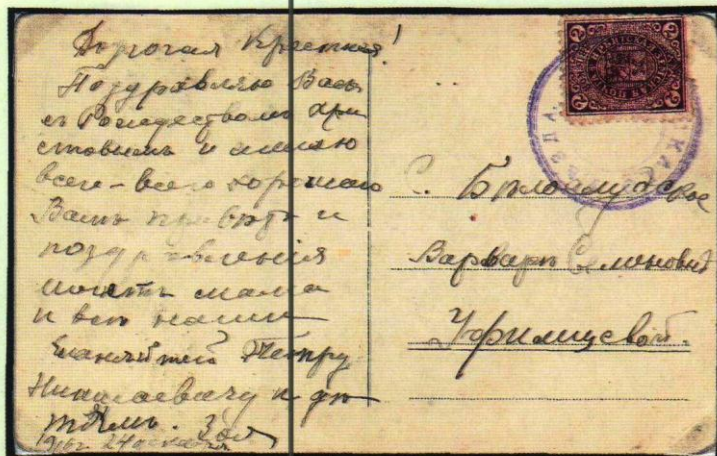 Дорогая Крестная!
Поздравляю Васъ
съ Рождествомъ Хри
стовымъ и желаю
всего-всего хорошаго
Вамъ привѣтъ и
поздравленія
шлетъ мама
и всѣ наши
Кланяйтесь Петру
Николаевичу и дѣ
тямъ. Зоя
1916 г. 24 декабря
С. Бѣлослудское
Варварѣ Семеновнѣ
Уфимцевой.
2 2
2 2
УѢЗДА